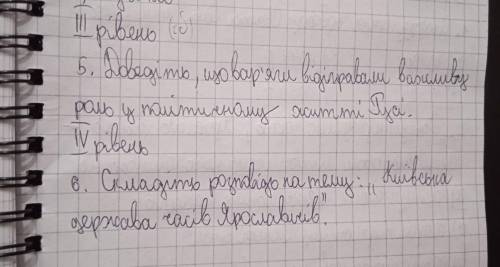 III рівень
5. Доведіть, що вар'яги відігравали важливу
роль у політичному житті Русі.
IV рівень
6. Складіть розповідь на тему: „Київська
держава часів Ярославичів".